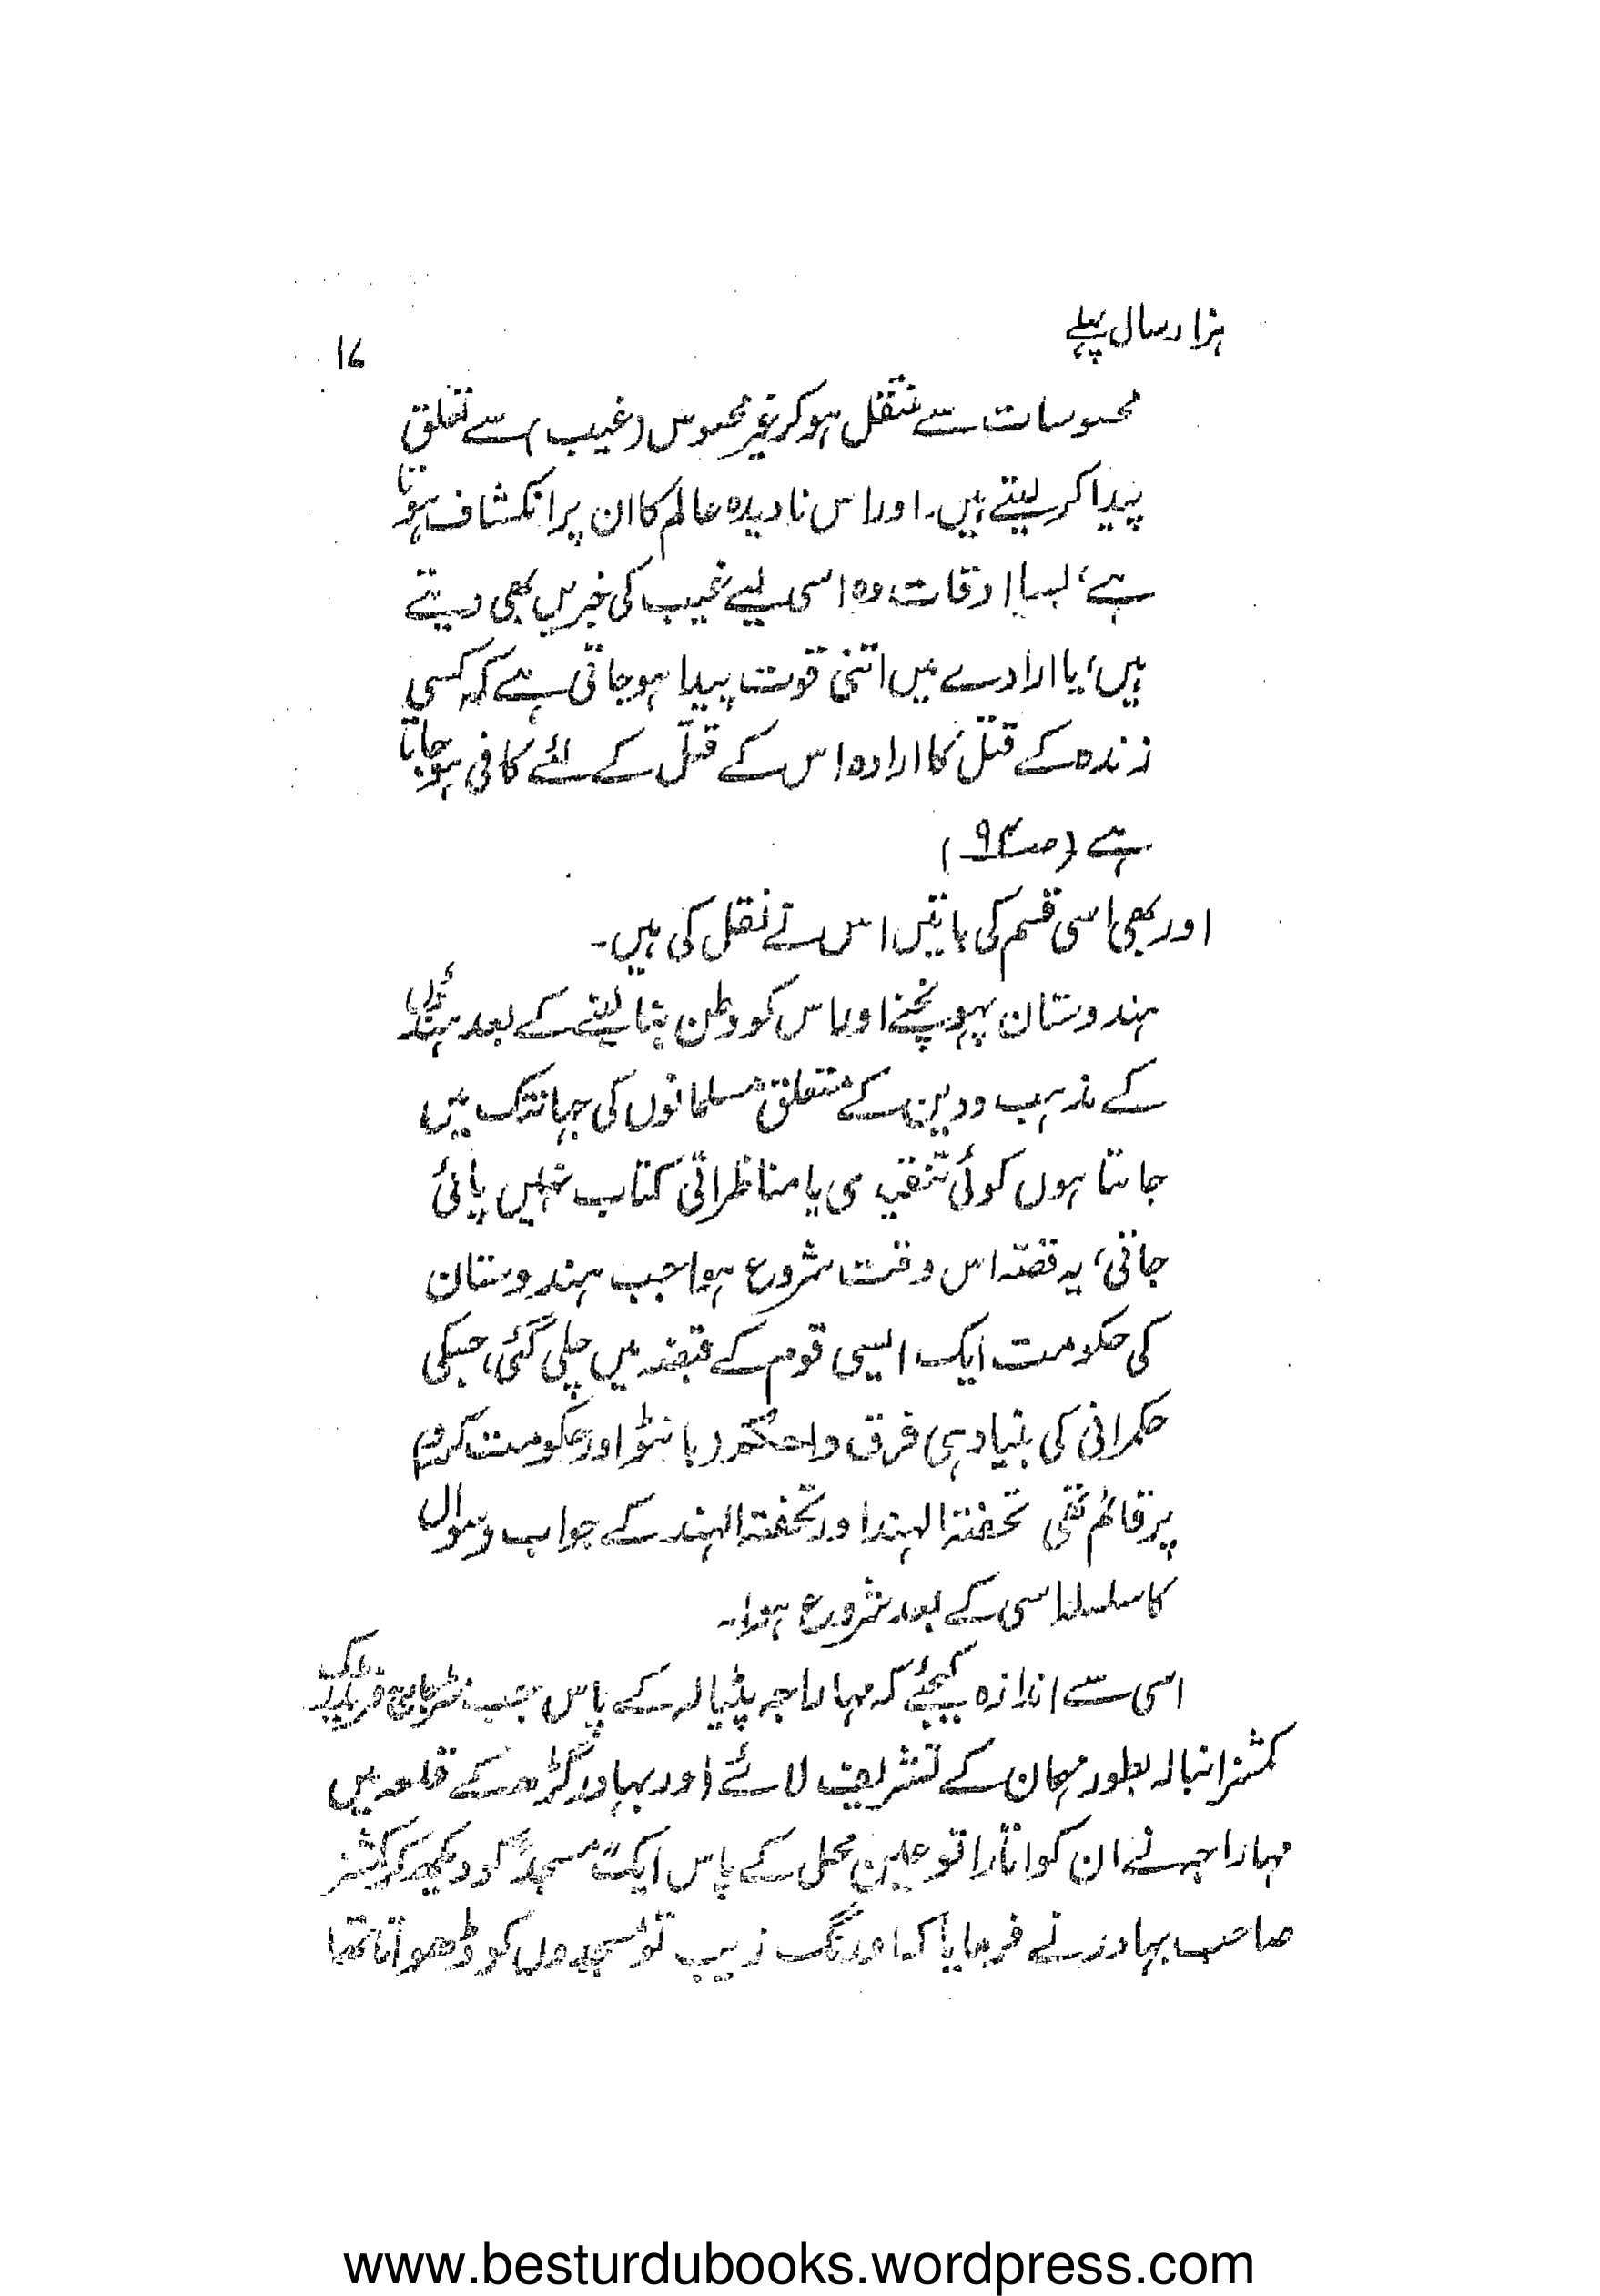 ہزار سال پہلے
۱۷
محسوسات سے منتقل ہو کر غیر محسوس (غیب) سے تعلق
پیدا کر لیتے ہیں۔ اور اس نادیدہ عالم کا ان پر انکشاف ہوتا
ہے، بسا اوقات وہ اسی لیے غیب کی خبریں بھی دیتے
ہیں، یا ارادے میں اتنی قوت پیدا ہو جاتی ہے کہ کسی
زندہ کے قتل کا ارادہ اس کے قتل کے لئے کافی ہو جاتا
ہے (صـ۹۴)
اور بھی اسی قسم کی باتیں اس نے نقل کی ہیں۔
ہندوستان پہونچنے اور اس کو وطن بنا لینے کے بعد ہندؤں
کے مذہب و دین کے متعلق مسلمانوں کی جہانتک میں
جانتا ہوں کوئی تنقیدی یا مناظراتی کتاب نہیں پائی
جاتی، یہ قصّہ اس وقت شروع ہوا جب ہندوستان
کی حکومت ایک ایسی قوم کے قبضہ میں چلی گئی، جسکی
حکمرانی کی بنیاد ہی فرق واحکم (بانٹو اور حکومت کرو)
پر قائم تھی تحفتہ الہند اور تحفتہ الہند کے جواب وسوال
کا سلسلہ اسی کے بعد شروع ہوا۔
اسی سے اندازہ کیجئے کہ مہاراجہ پٹیالہ کے پاس جب
کمشنر انبالہ بطور مہمان کے تشریف لائے اور بہادر گڑھ کے قلعہ میں
مہاراجہ نے ان کو اتارا تو عین محل کے پاس ایک مسجد کو دیکھ کر کمشنر
صاحب بہادر نے فرمایا کہ اورنگ زیب تو مسجدوں کو ڈھواتا تھا
www.besturdubooks.wordpress.com